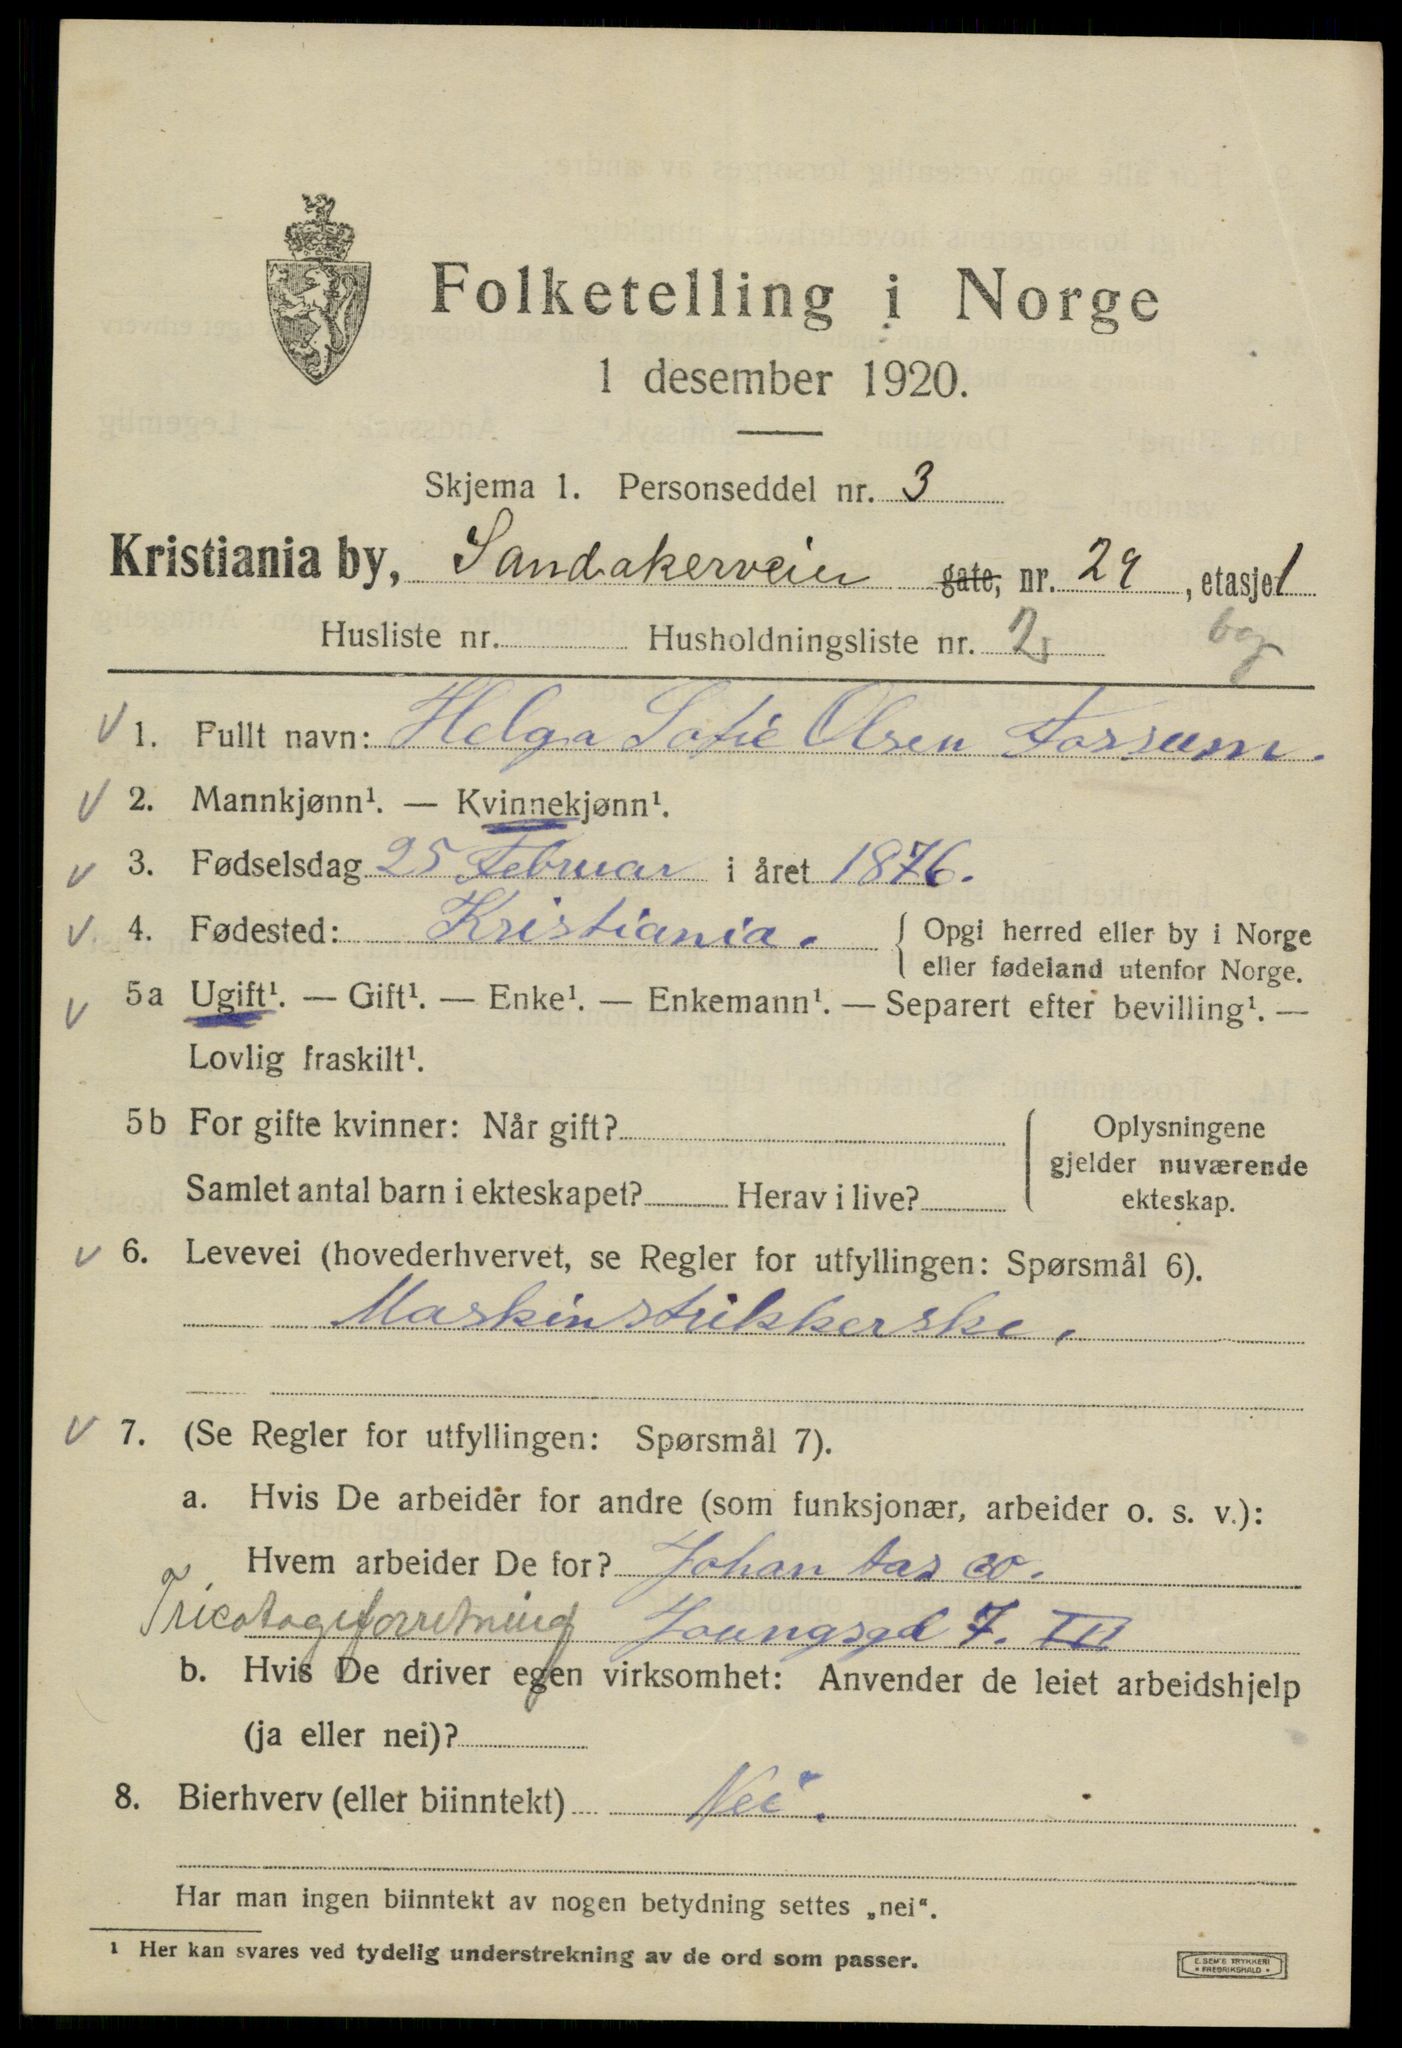 Folketelling i Norge
1 desember 1920.
Skjema 1. Personseddel nr. 3
Kristiania by, Sandakerveien gate, nr. 29, etasje 1
Husliste nr. Husholdningsliste nr. 2
V 1. Fullt navn: Helga Sofie Olsen Fossum.
V 2. Mannkjønn¹. — Kvinnekjønn¹.
V 3. Fødselsdag 25 Februar i året 1876.
V 4. Fødested: Kristiania. { Opgi herred eller by i Norge
eller fødeland utenfor Norge.
V 5a Ugift¹. — Gift¹. — Enke¹. — Enkemann¹. — Separert efter bevilling¹. —
Lovlig fraskilt¹.
5b For gifte kvinner: Når gift? { Oplysningene
gjelder nuværende
Samlet antal barn i ekteskapet? Herav i live? ekteskap.
V 6. Levevei (hovederhvervet, se Regler for utfyllingen: Spørsmål 6).
Maskinstrikkerske.
V 7. (Se Regler for utfyllingen: Spørsmål 7).
a. Hvis De arbeider for andre (som funksjonær, arbeider o. s. v.):
Hvem arbeider De for? Johan co.
Tricotageforretning Youngsgd 7. III
b. Hvis De driver egen virksomhet: Anvender de leiet arbeidshjelp
(ja eller nei)?
8. Bierhverv (eller biinntekt) Nei.
Har man ingen biinntekt av nogen betydning settes „nei“.
¹ Her kan svares ved tydelig understrekning av de ord som passer.
E. SEM'S TRYKKERI
• FREDRIKSHALD •